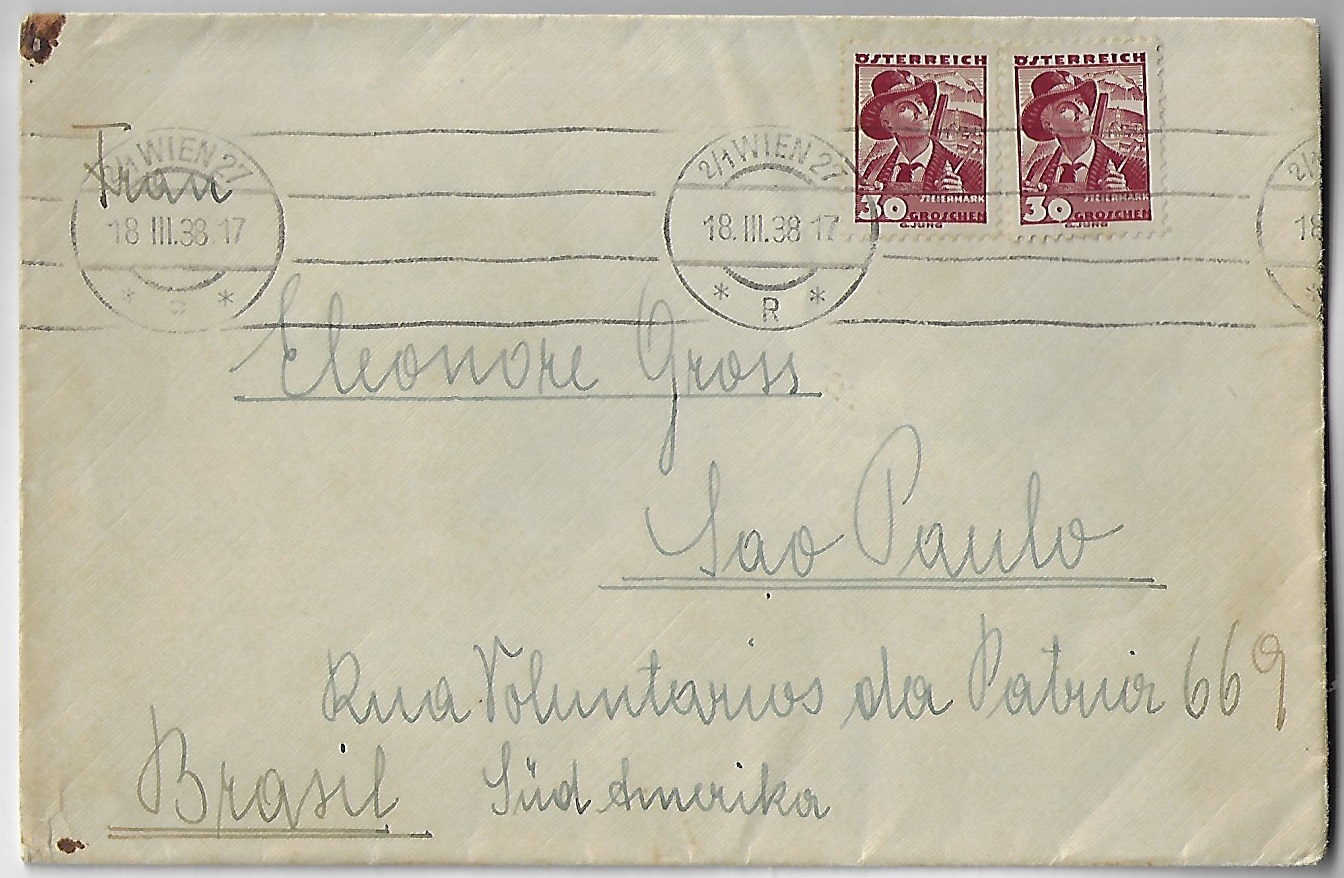 ÖSTERREICH ÖSTERREICH
30 STEIERMARK GROSCHEN 30 STEIERMARK GROSCHEN
G.JUNG G.JUNG
2/1 WIEN 27 2/1 WIEN 27 2/1
18 III.38 17 18.III.38 17 18
* * * R * *
Frau
Eleonore Gross
Sao Paulo
Rua Voluntarios da Patria 669
Brasil Süd Amerika